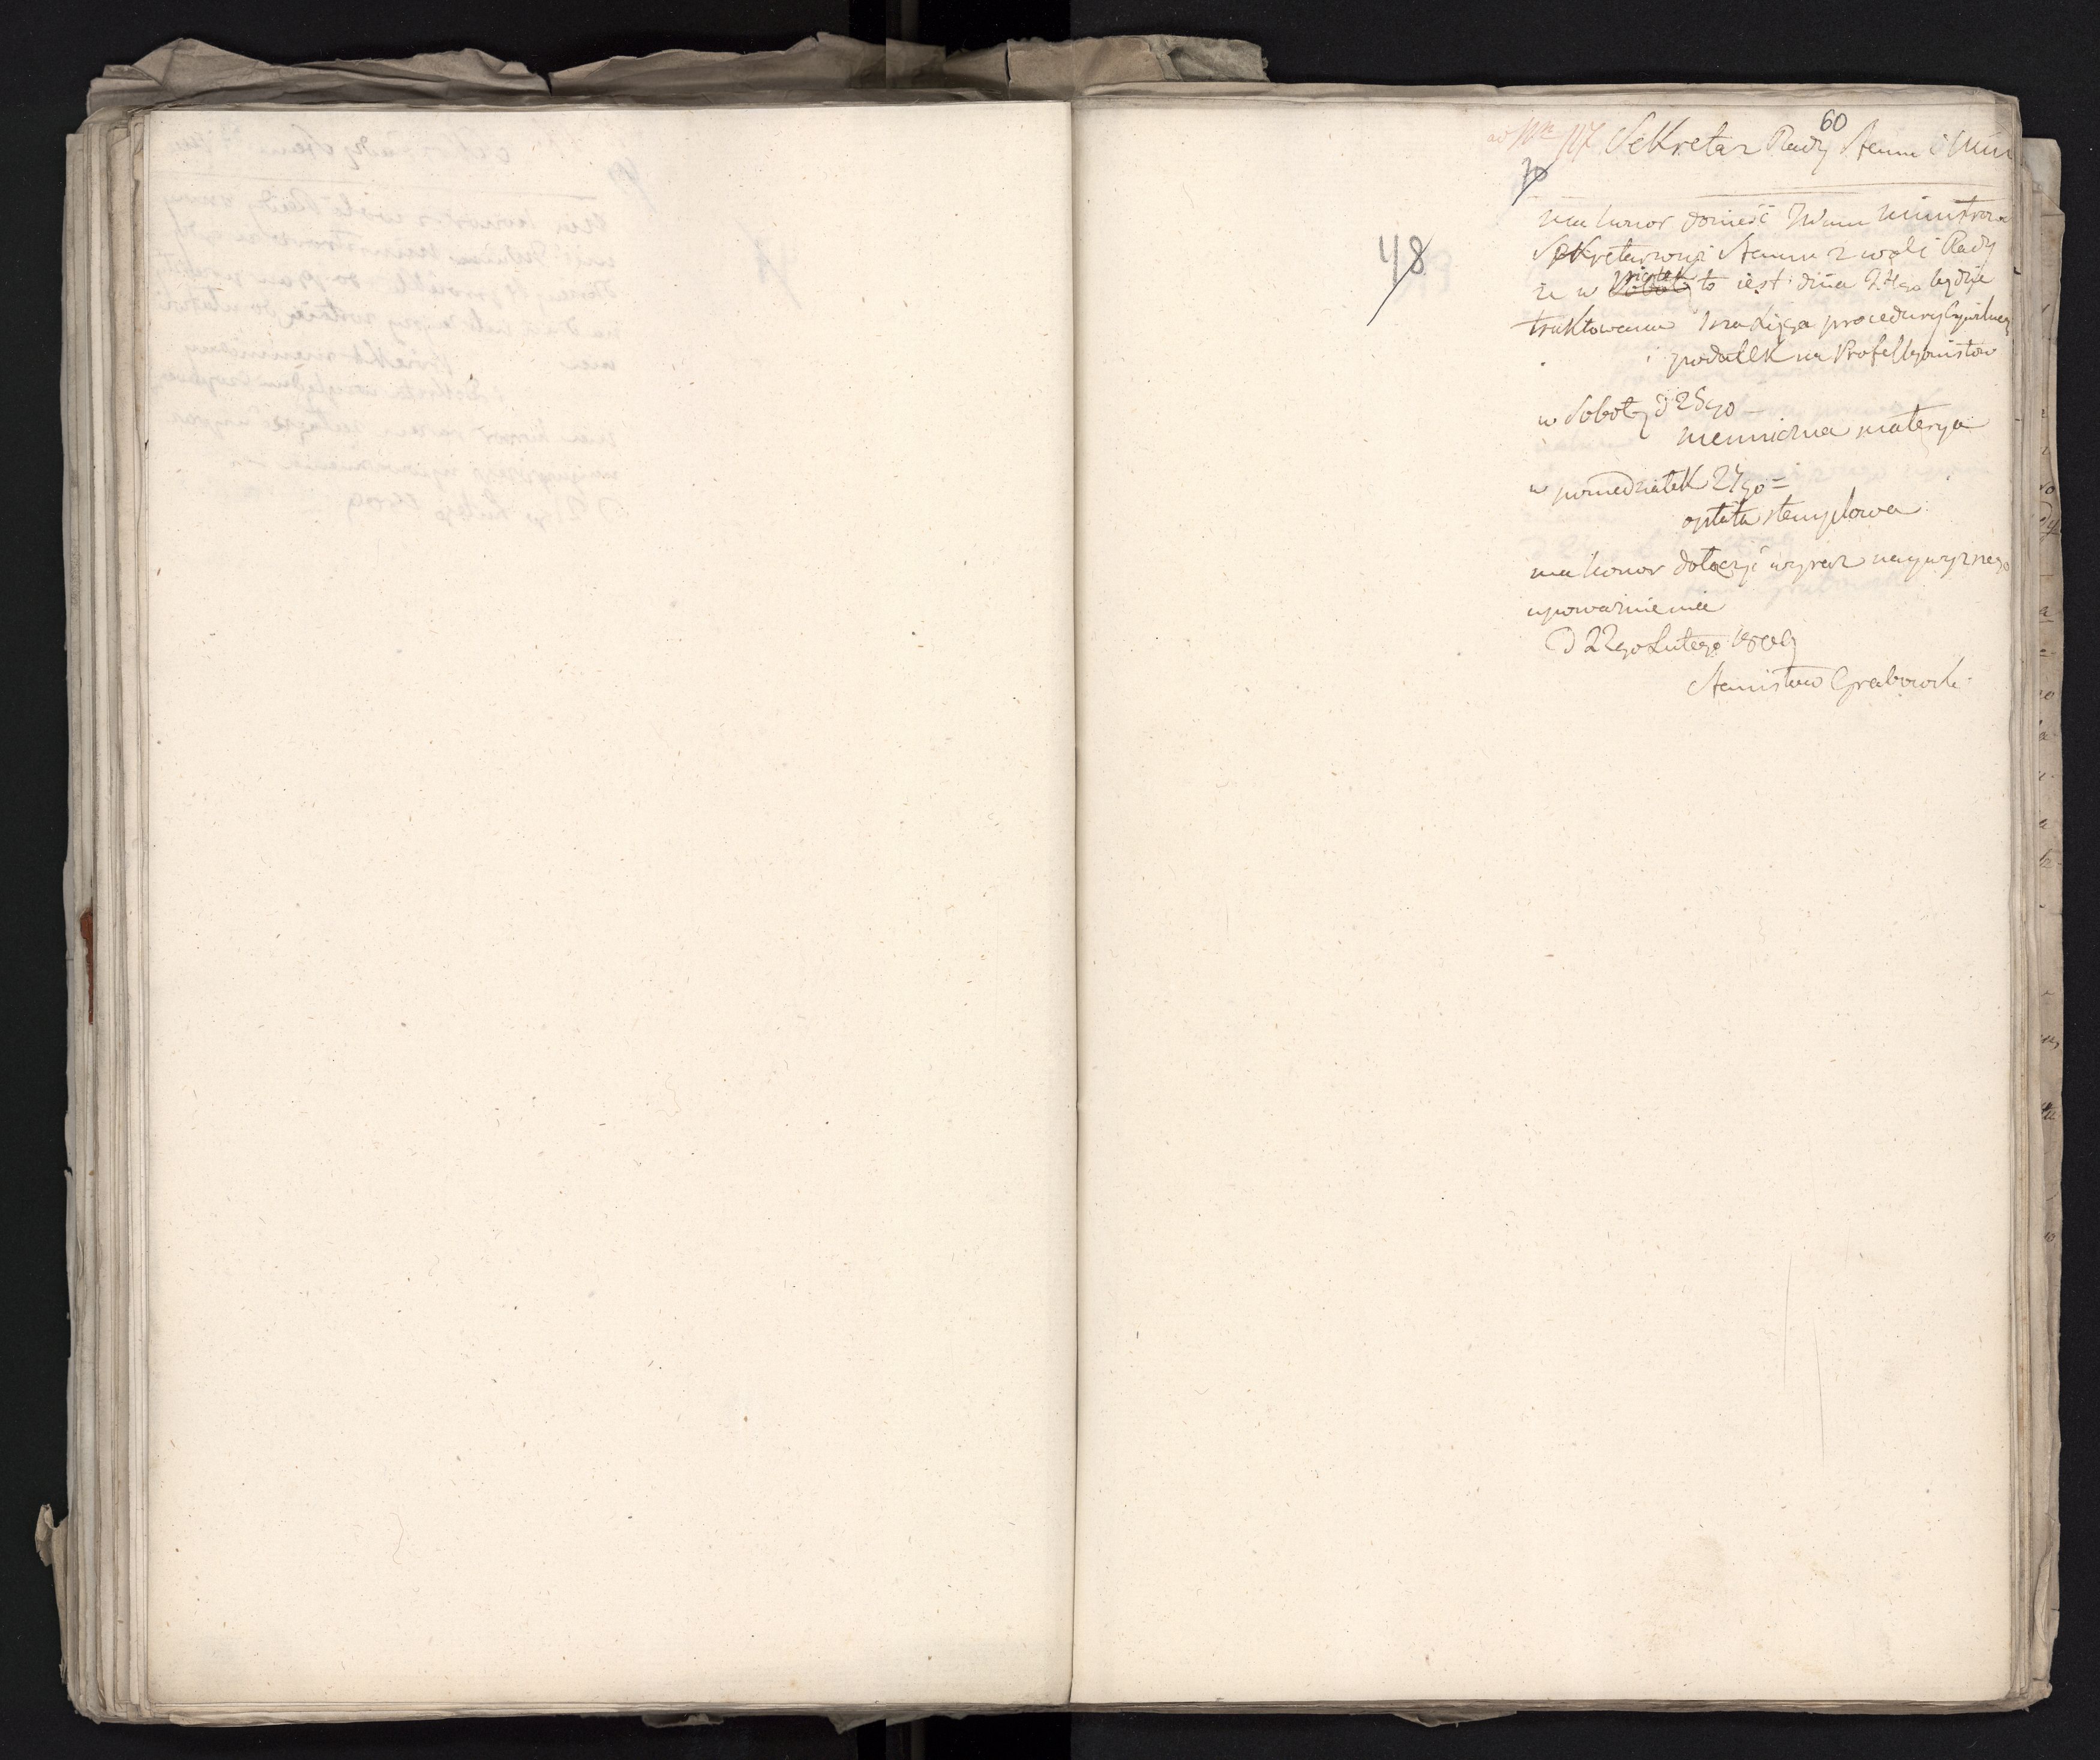 60
ad Nr 117 Sekretarz Rady Stanu i Min
70
48
ma honor donieść JWmu Ministrowi
Sekretarzowi Stanu z woli Rady
że w piątek to iest dnia 24go będzie
traktowana procedury Cywilney
i podatek na Professyonistow
w Sobotę d 25go
mennicza materya
w poniedziałek 27go =
opłata stemplowa
ma honor dołączyć wyraz naywyższego
upoważnienia
D 22go Lutego 1809
Stanisław Grabowski